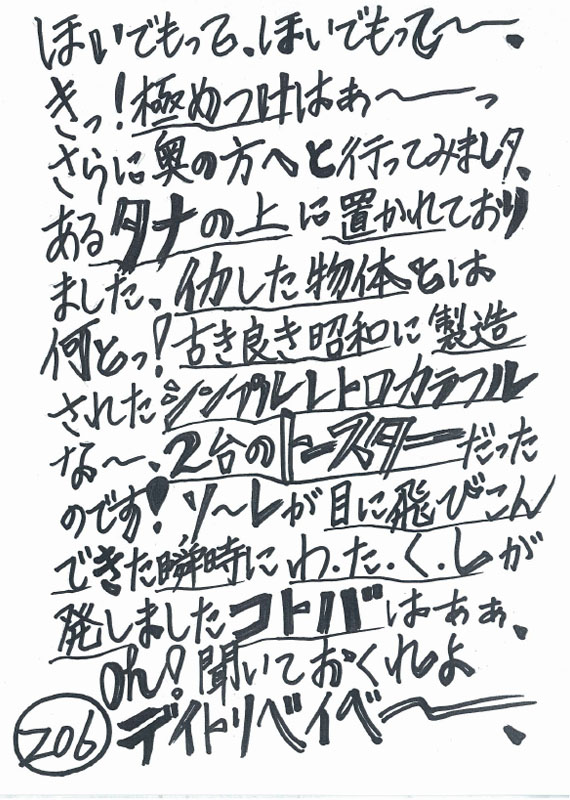 ほいでもって、ほいでもって〜、
きっ！極めつけはぁ〜っ
さらに奥の方へと行ってみましタ、
あるタナの上に置かれており
ました、イカした物体とは
何とっ！古き良き昭和に製造
されたシンプルレトロカラフル
な〜、2台のトースターだった
のです！ソ〜レが目に飛びこん
できた瞬時にわ.た.く.しが
発しましたコトバはぁぁ、
Oh！聞いておくれよ
デイトリベイベ〜、
206